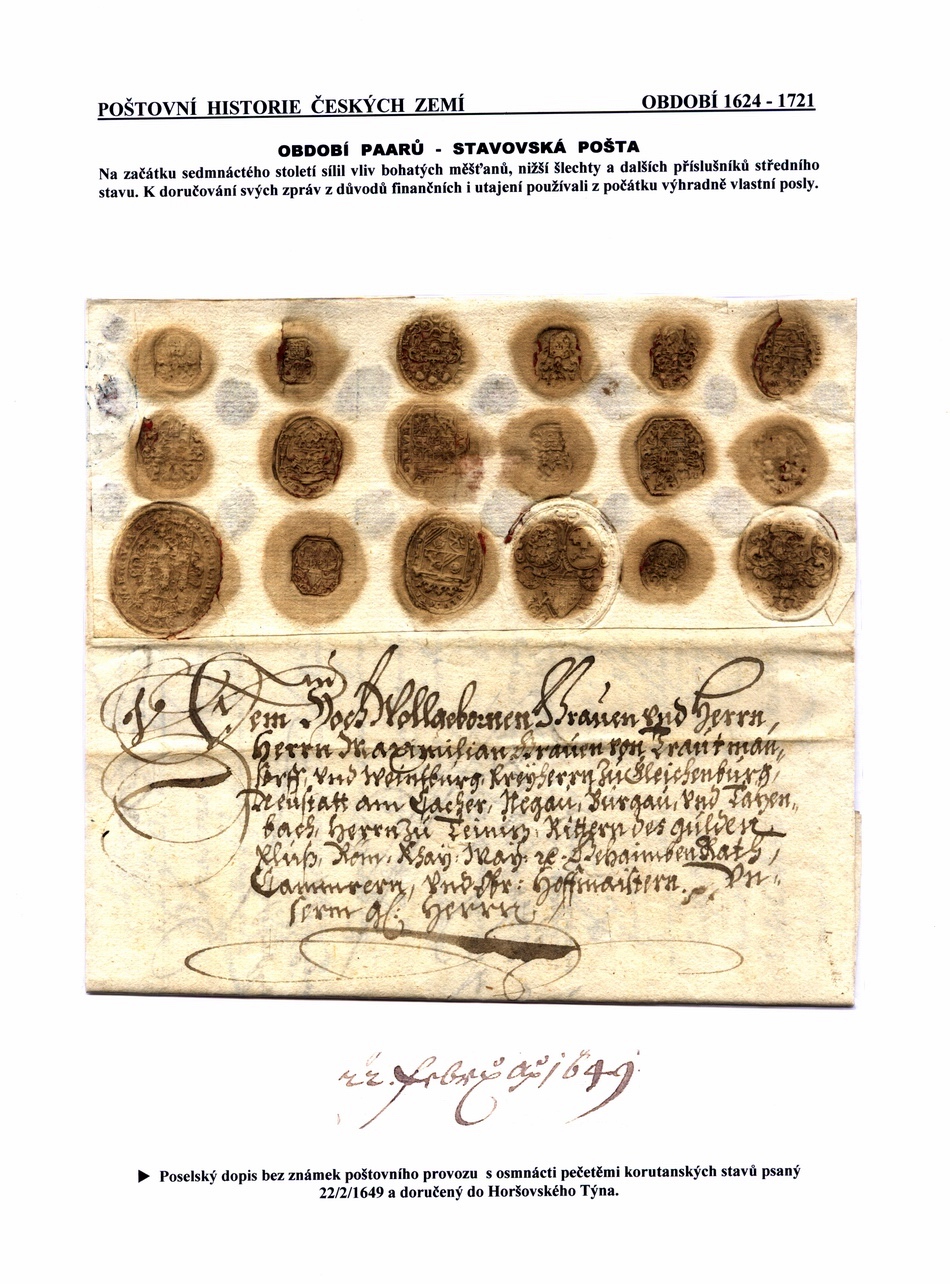 POŠTOVNÍ HISTORIE ČESKÝCH ZEMÍ OBDOBÍ 1624 - 1721
OBDOBÍ PAARŮ - STAVOVSKÁ POŠTA
Na začátku sedmnáctého století sílil vliv bohatých měšťanů, nižší šlechty a dalších příslušníků středního
stavu. K doručování svých zpráv z důvodů finančních i utajení používali z počátku výhradně vlastní posly.
Dem Hoch Wollgebornen Grauen vnd Herrn,
Herrn Maximilian Grauen von Trautman-
storff, vnd Weinsburg, Freyherrn zu Gleichenburg,
Neustatt am Cacher, Negau, Burgau, vnd Tazen-
bach, Herrn zu Teinitz, Rittern des gulden
Fluß, Röm: Khay: May: Gehaimben Rath,
Cammrern, vnd Obr: Hoffmaistern. Vn-
serm gl: Herrn
22. Febru 1649
▶ Poselský dopis bez známek poštovního provozu s osmnácti pečetěmi korutanských stavů psaný
22/2/1649 a doručený do Horšovského Týna.